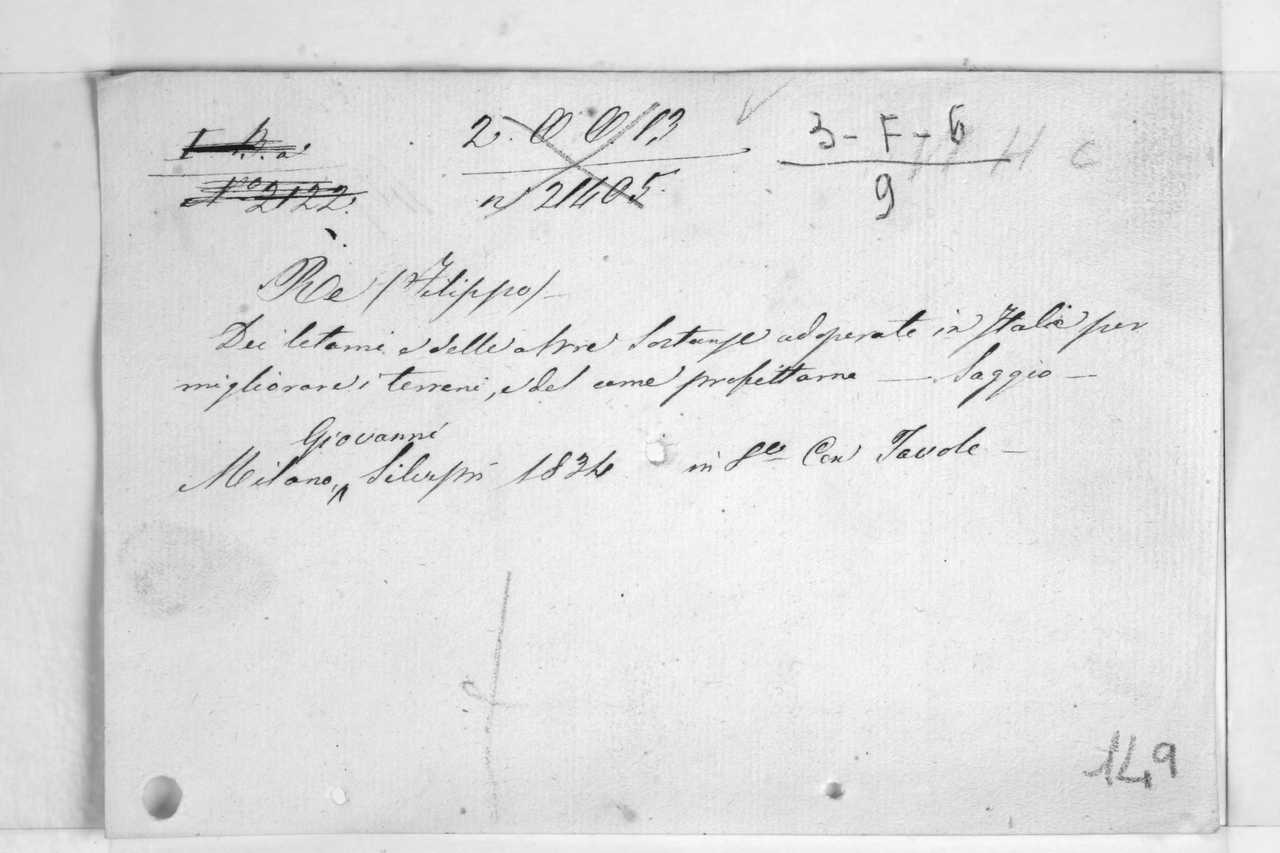 2. O O 13
n 21405.
3 - F - 6
9
H C
N.ro 2122.
Re (Filippo) —
Dei letami e delle altre Sostanze adoperate in Italia per
migliorare i terreni, e del come profittarne — Saggio —
Giovanni
Milano, Silvestri 1834 in 8.vo Con Tavole —
149